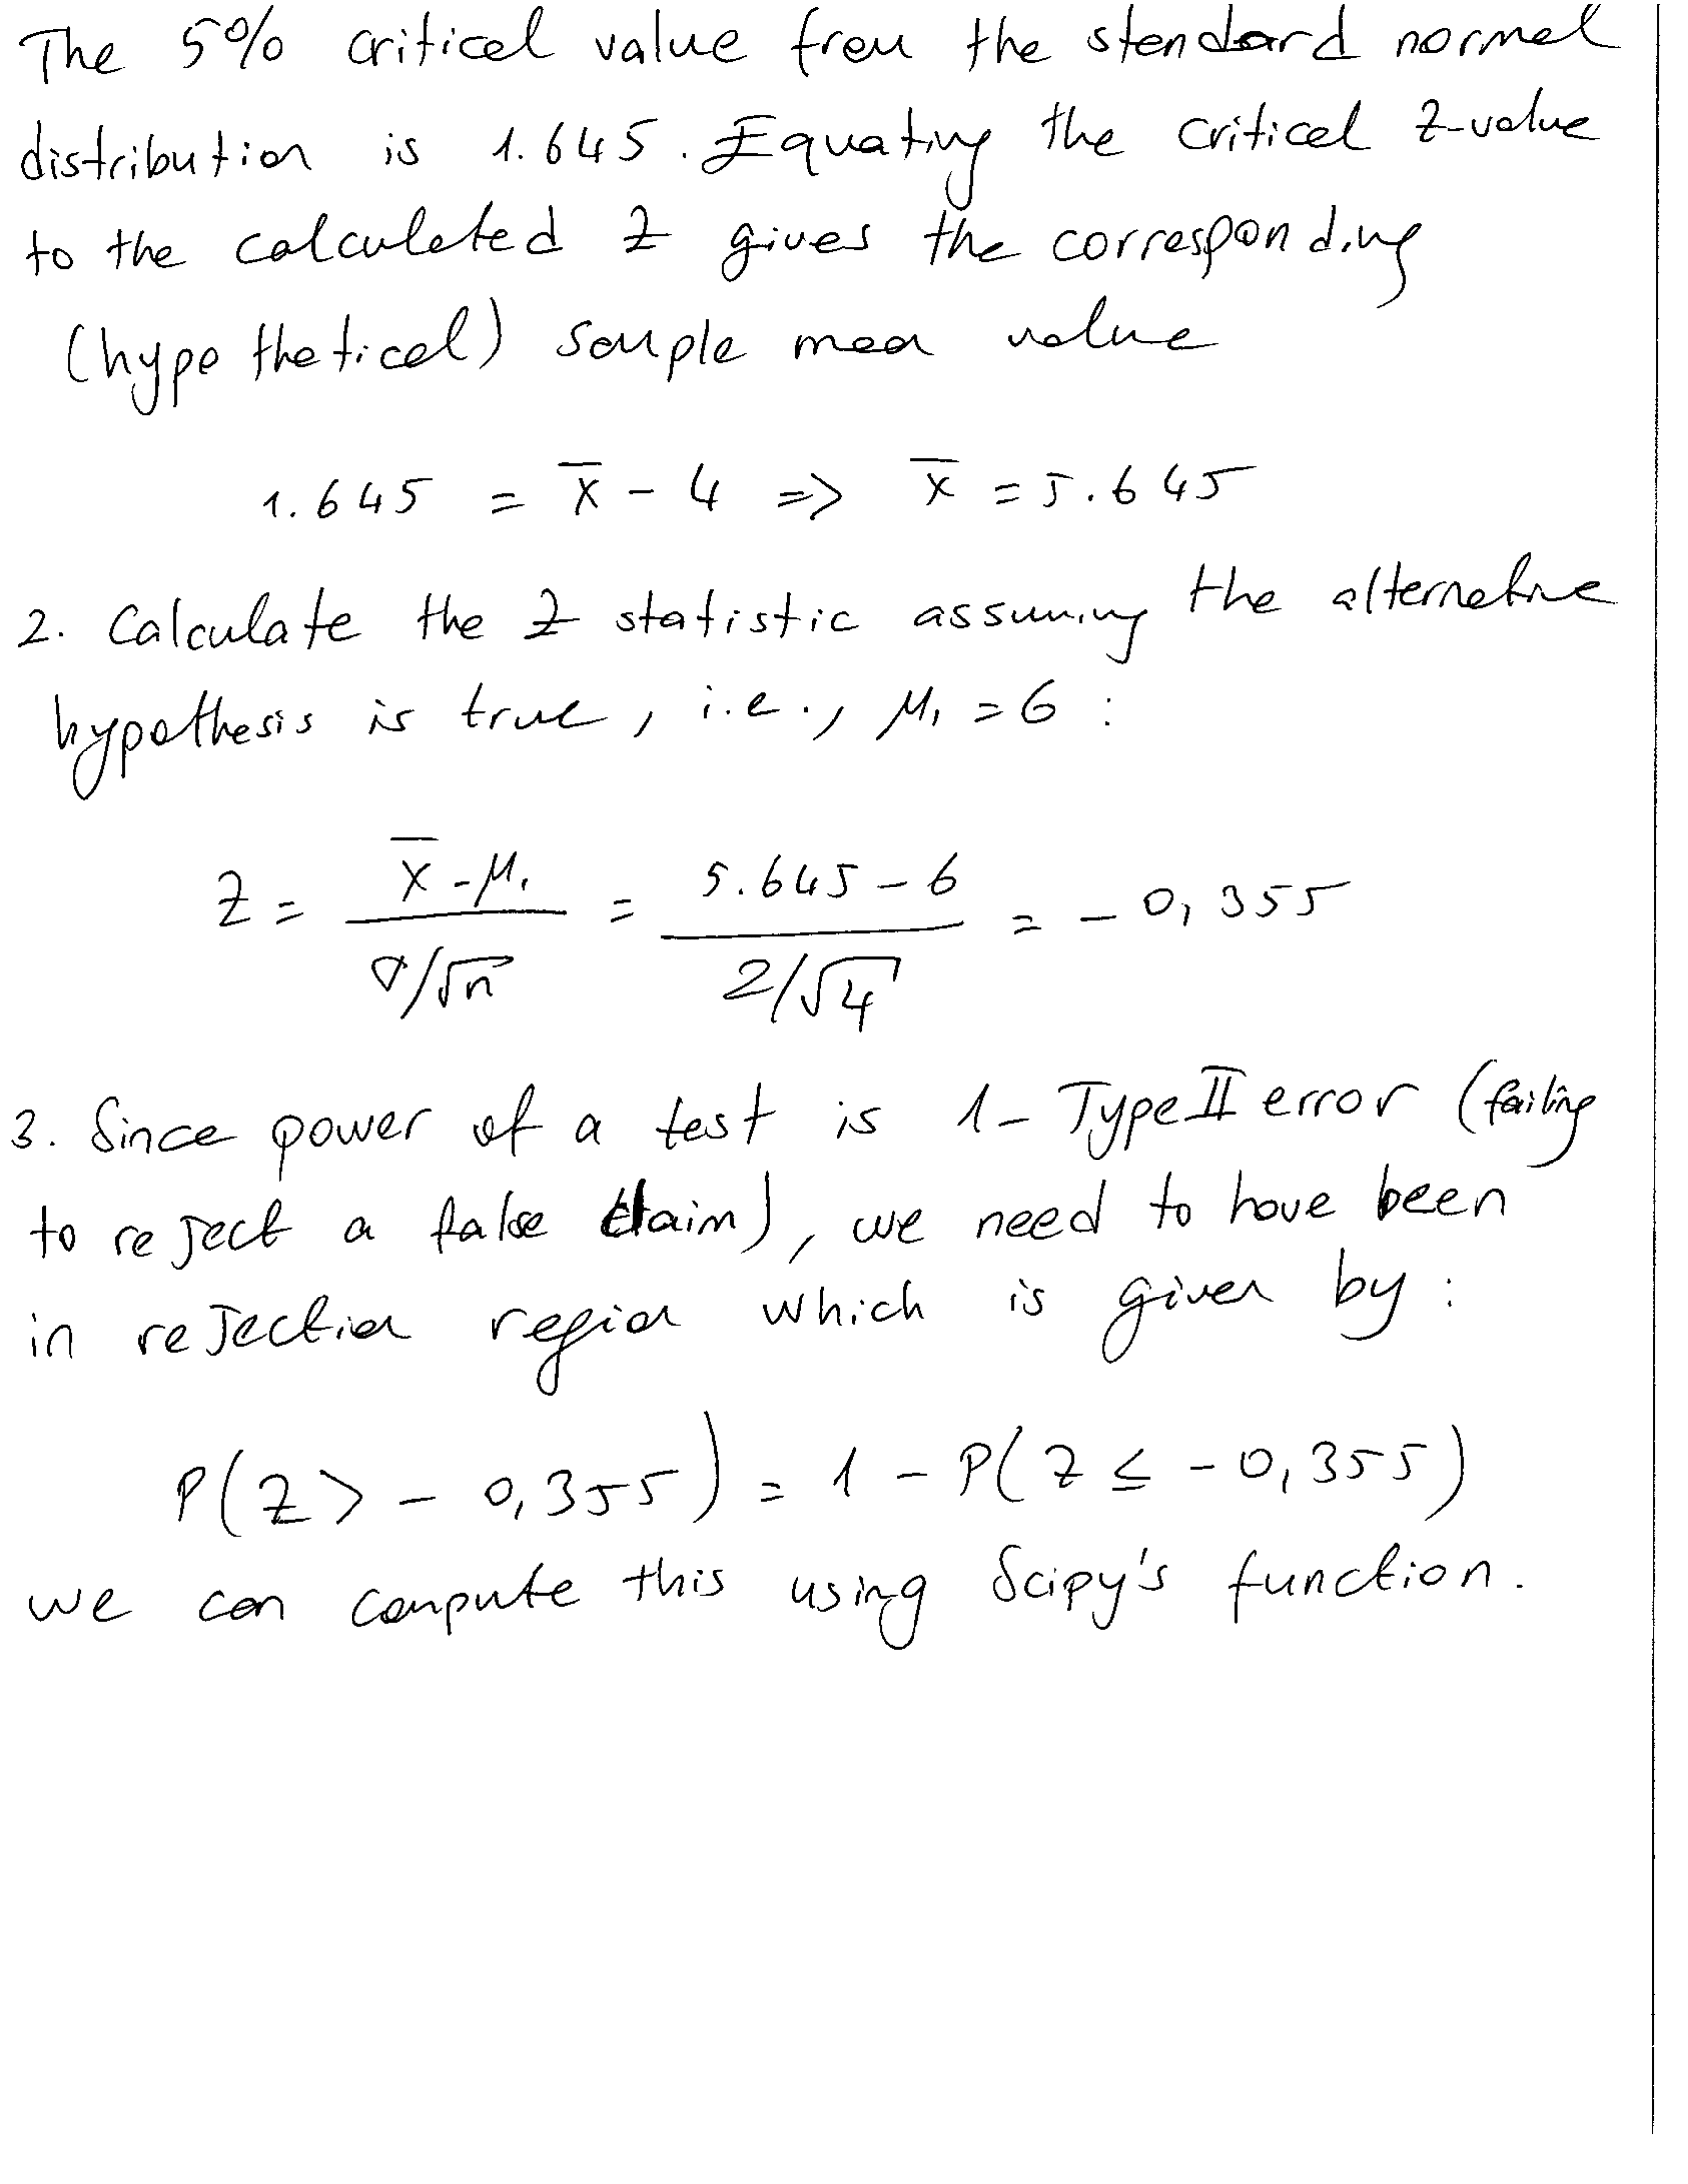 The 5% critical value from the standard normal
distribution is 1.645. Equating the critical z-value
to the calculated z gives the corresponding
(hypothetical) sample mean value
1.645 = x̄ - 4 => x̄ = 5.645
2. Calculate the z statistic assuming the alternative
hypothesis is true, i.e., μ₁ = 6 :
z = (x̄ - μ₁) / (σ/√n) = (5.645 - 6) / (2/√4) = - 0,355
3. Since power of a test is 1 - Type II error (failing
to reject a false claim), we need to have been
in rejection region which is given by :
P(z > - 0,355) = 1 - P(z ≤ - 0,355)
we can compute this using Scipy's function.